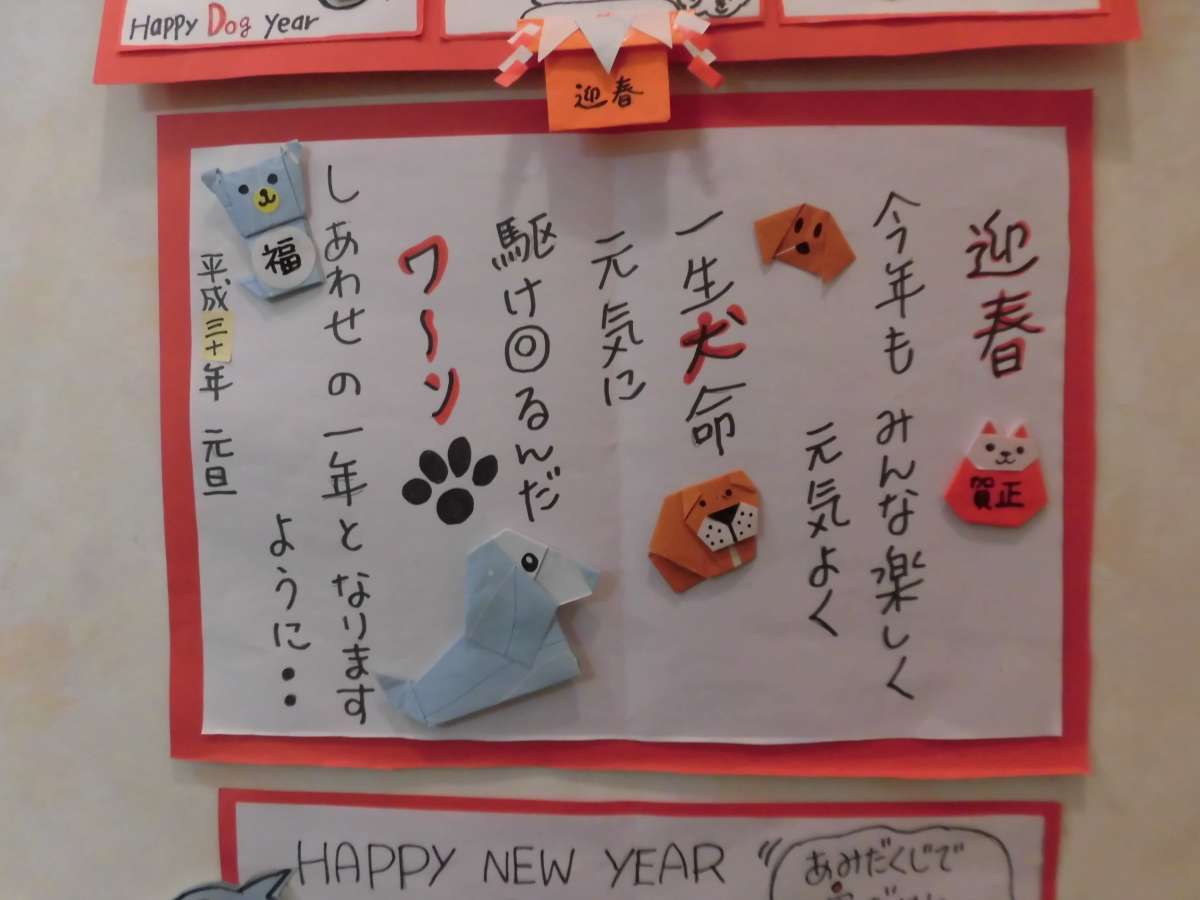 Happy Dog year
迎春
迎春
賀正
今年も みんな楽しく
元気よく
一生犬命
元気に
駆け回るんだ
ワ～ン
しあわせの一年となります
ように・・
福
平成三十年 元旦
HAPPY NEW YEAR
あみだくじで